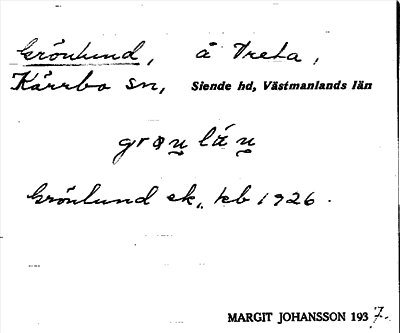 Grönlund, å Treta,
Kärrbo sn, Siende hd, Västmanlands län
Grönlund ek., kb 1926.
MARGIT JOHANSSON 1937.